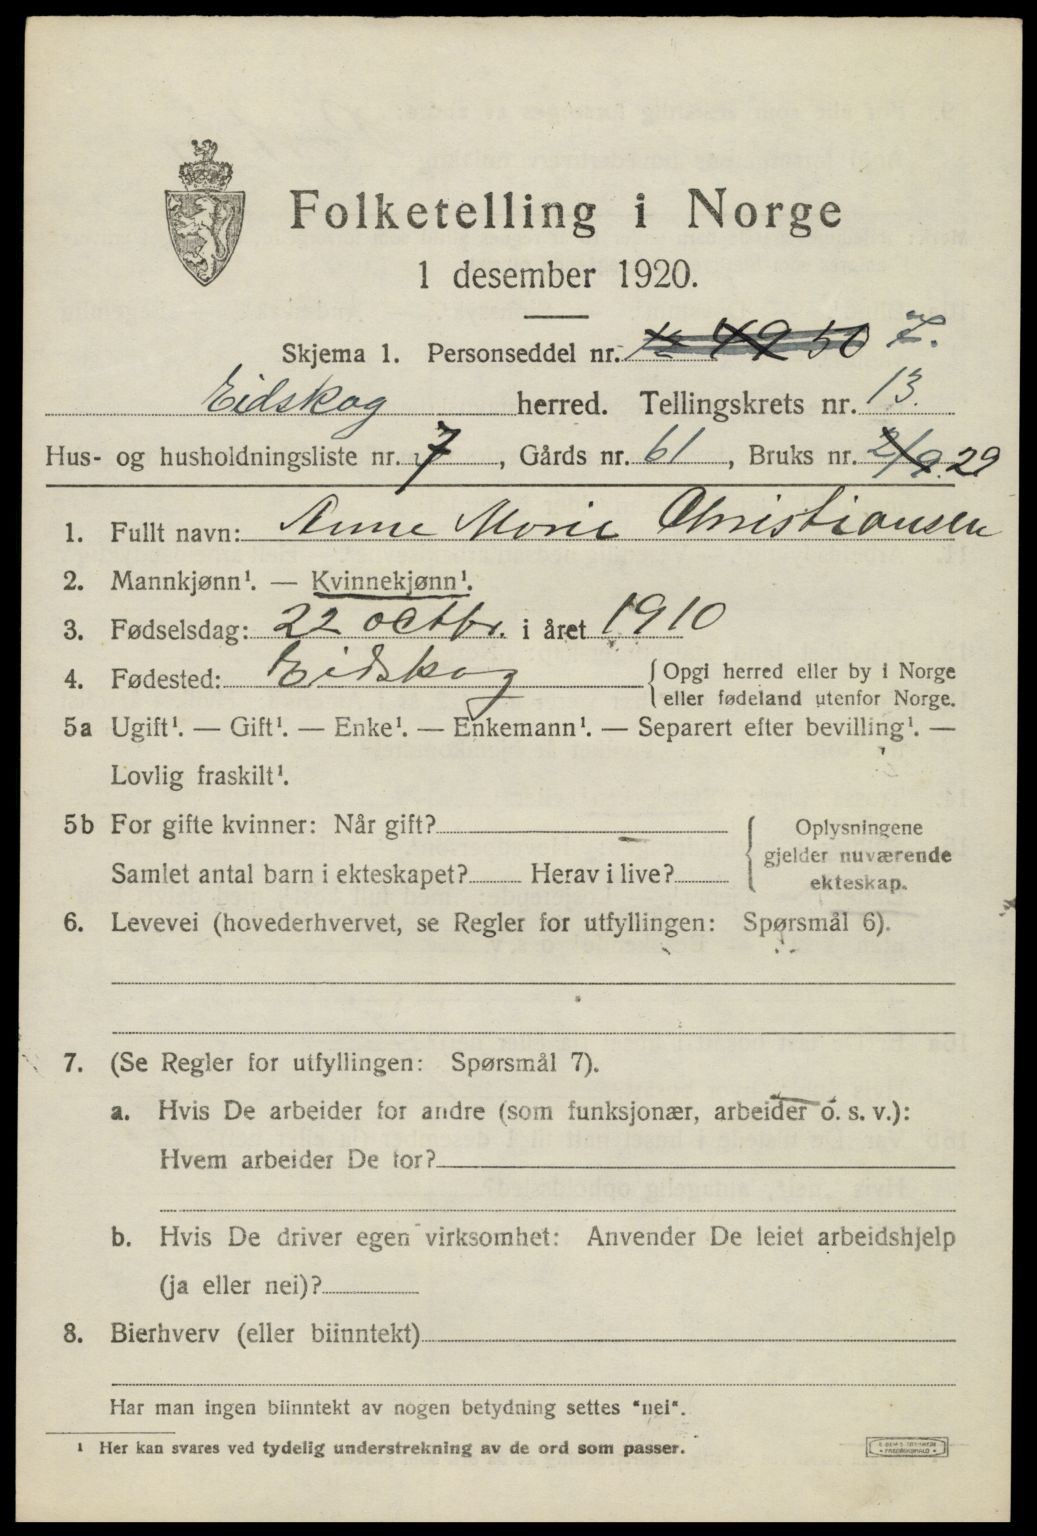 Folketelling i Norge
1 desember 1920.
Skjema 1. Personseddel nr. 7.
Eidskog herred. Tellingskrets nr. 13.
Hus- og husholdningsliste nr. 7, Gårds nr. 61, Bruks nr. 29
1. Fullt navn: Anne Marie Christiansen
2. Mannkjønn¹. — Kvinnekjønn¹.
3. Fødselsdag: 22 octbr. i året 1910
4. Fødested: Eidskog { Opgi herred eller by i Norge
eller fødeland utenfor Norge.
5a Ugift¹. — Gift¹. — Enke¹. — Enkemann¹. — Separert efter bevilling¹. —
Lovlig fraskilt¹.
5b For gifte kvinner: Når gift?
Samlet antal barn i ekteskapet? Herav i live?
{ Oplysningene
gjelder nuværende
ekteskap.
6. Levevei (hovederhvervet, se Regler for utfyllingen: Spørsmål 6).
7. (Se Regler for utfyllingen: Spørsmål 7).
a. Hvis De arbeider for andre (som funksjonær, arbeider o. s. v.):
Hvem arbeider De for?
b. Hvis De driver egen virksomhet: Anvender De leiet arbeidshjelp
(ja eller nei)?
8. Bierhverv (eller biinntekt)
Har man ingen biinntekt av nogen betydning settes "nei".
¹ Her kan svares ved tydelig understrekning av de ord som passer.